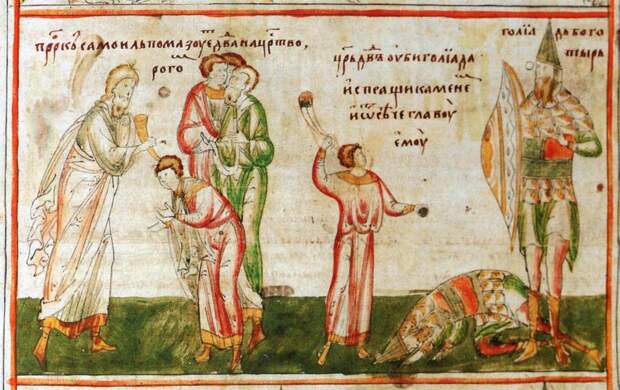 прр҃къ самоилъ помазоуе дв҃да на црⷭ҇тво,
рогоⷨ
цр҃ь дв҃ъ оуби голіада
ис пращи камене
и ѿсѣче главоу
емоу
голіадь бого
тырь